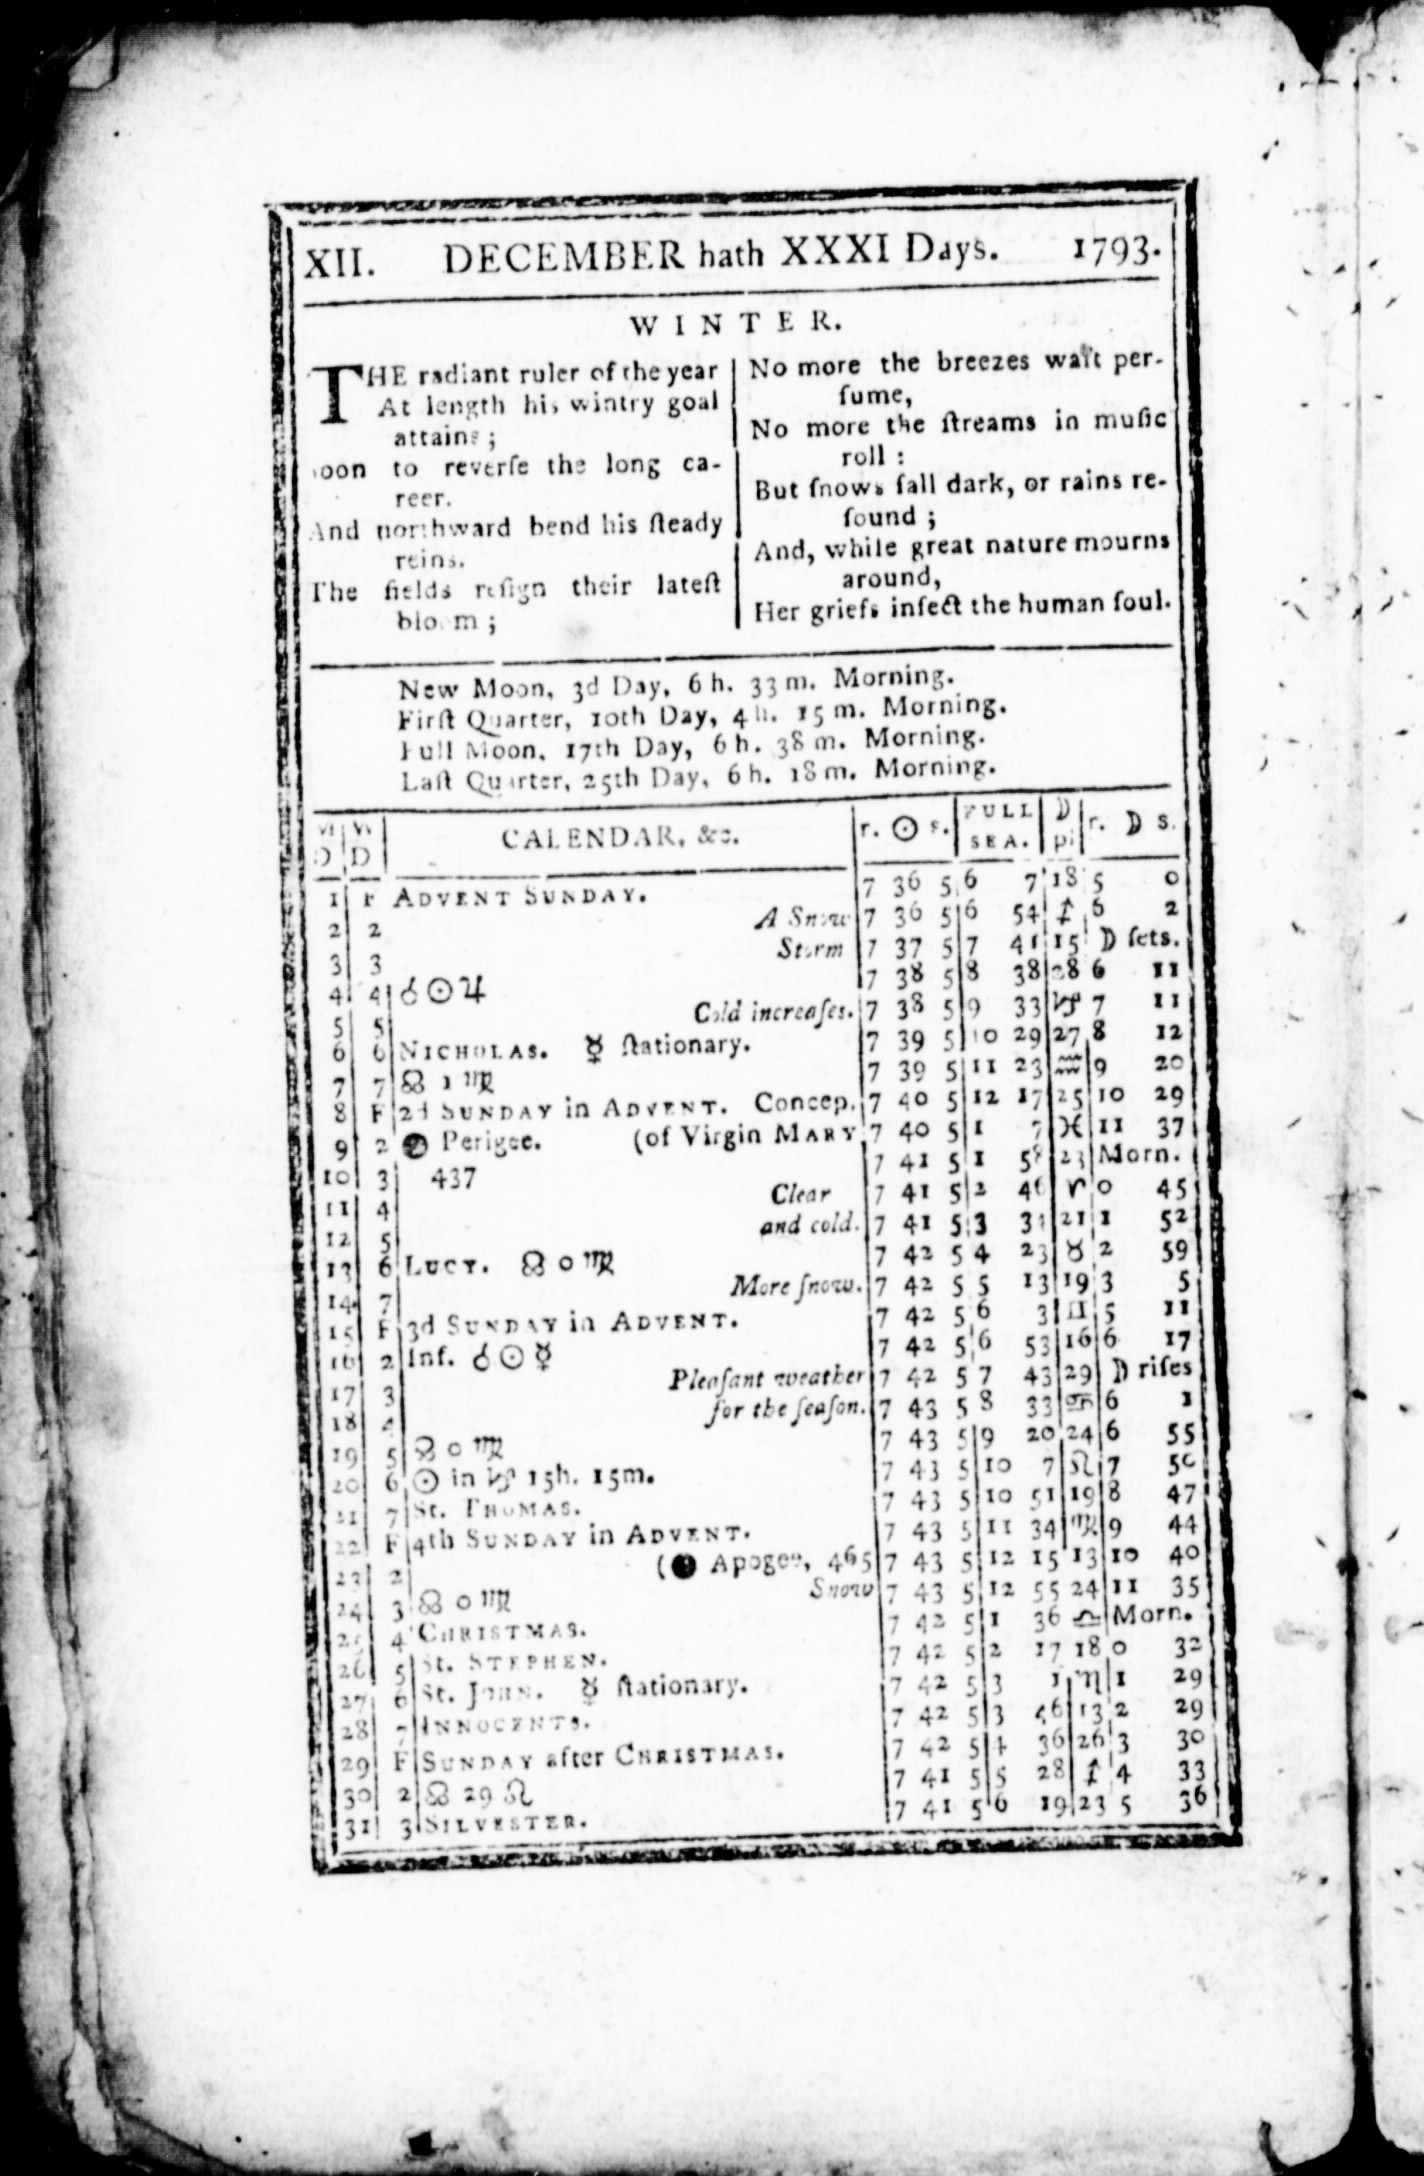 XII. DECEMBER hath XXXI Days. 1793.
WINTER.
THE radiant ruler of the year
At length his wintry goal
attains;
soon to reverſe the long ca-
reer.
And northward bend his ſteady
reins.
The fields reſign their lateſt
bloom;
No more the breezes waft per-
fume,
No more the ſtreams in muſic
roll:
But ſnows fall dark, or rains re-
ſound;
And, while great nature mourns
around,
Her griefs infect the human ſoul.
New Moon, 3d Day, 6 h. 33 m. Morning.
Firſt Quarter, 10th Day, 4 h. 15 m. Morning.
Full Moon, 17th Day, 6 h. 38 m. Morning.
Laſt Quarter, 25th Day, 6 h. 18 m. Morning.
M D | W D | CALENDAR, &c. | r. ☉ s. | FULL SEA. | ☽ pl | r. ☽ s.
1 F ADVENT SUNDAY. 7 36 5 6 7 18 5 0
2 2 A Snow 7 36 5 6 54 ♐ 6 2
3 3 Storm 7 37 5 7 41 15 ☽ ſets.
4 4 ☌ ☉ ♃ 7 38 5 8 38 28 6 11
5 5 Cold increaſes. 7 38 5 9 33 ♑ 7 11
6 6 NICHOLAS. ☿ ſtationary. 7 39 5 10 29 27 8 12
7 7 ☊ 1 ♍ 7 39 5 11 23 ♒ 9 20
8 F 2d SUNDAY in ADVENT. Concep. 7 40 5 12 17 25 10 29
9 2 ☽ Perigee. (of Virgin MARY 7 40 5 1 7 ♓ 11 37
10 3 437 7 41 5 1 58 23 Morn.
11 4 Clear 7 41 5 2 46 ♈ 0 45
12 5 and cold. 7 41 5 3 34 21 1 52
13 6 LUCY. ☊ 0 ♍ 7 42 5 4 23 ♉ 2 59
14 7 More ſnow. 7 42 5 5 13 19 3 5
15 F 3d SUNDAY in ADVENT. 7 42 5 6 3 ♊ 5 11
16 2 Inf. ☌ ☉ ☿ 7 42 5 6 53 16 6 17
17 3 Pleaſant weather 7 42 5 7 43 29 ☽ riſes
18 4 for the ſeaſon. 7 43 5 8 33 ♋ 6 1
19 5 ☊ 0 ♍ 7 43 5 9 20 24 6 55
20 6 ☉ in ♑ 15h. 15m. 7 43 5 10 7 ♌ 7 50
21 7 St. THOMAS. 7 43 5 10 51 19 8 47
22 F 4th SUNDAY in ADVENT. 7 43 5 11 34 ♍ 9 44
23 2 (☽ Apogee, 465 7 43 5 12 15 13 10 40
24 3 ☊ 0 ♍ Snow 7 43 5 12 55 24 11 35
25 4 CHRISTMAS. 7 42 5 1 36 ♎ Morn.
26 5 St. STEPHEN. 7 42 5 2 17 18 0 32
27 6 St. JOHN. ☿ ſtationary. 7 42 5 3 1 ♏ 1 29
28 7 INNOCENTS. 7 42 5 3 46 13 2 29
29 F SUNDAY after CHRISTMAS. 7 42 5 4 36 26 3 30
30 2 ☊ 29 ♌ 7 41 5 5 28 ♐ 4 33
31 3 SILVESTER. 7 41 5 6 19 23 5 36